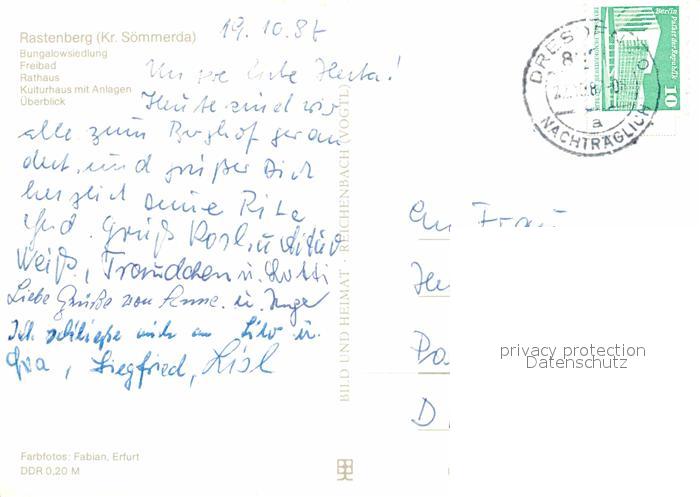 Rastenberg (Kr. Sömmerda)
Bungalowsiedlung
Freibad
Rathaus
Kulturhaus mit Anlagen
Überblick
19.10.87
liebe Herta!
Heute sind wir
alle zum Berghof gewan
dert, und grüßen Dich
herzlich Deine Rita
Und. Gruß Rosl. u.
Weiß, Traudchen u. Lotti
Liebe Grüße von Anne. u. Inge
Ich schließe mich an Lilo u.
Eva, Siegfried, Lisl
Farbfotos: Fabian, Erfurt
DDR 0,20 M
BILD UND HEIMAT · REICHENBACH (VOGTL)
DRESDEN
a
NACHTRÄGLICH
Berlin
Palast der Republik
10
An Frau
He
D
privacy protection
Datenschutz